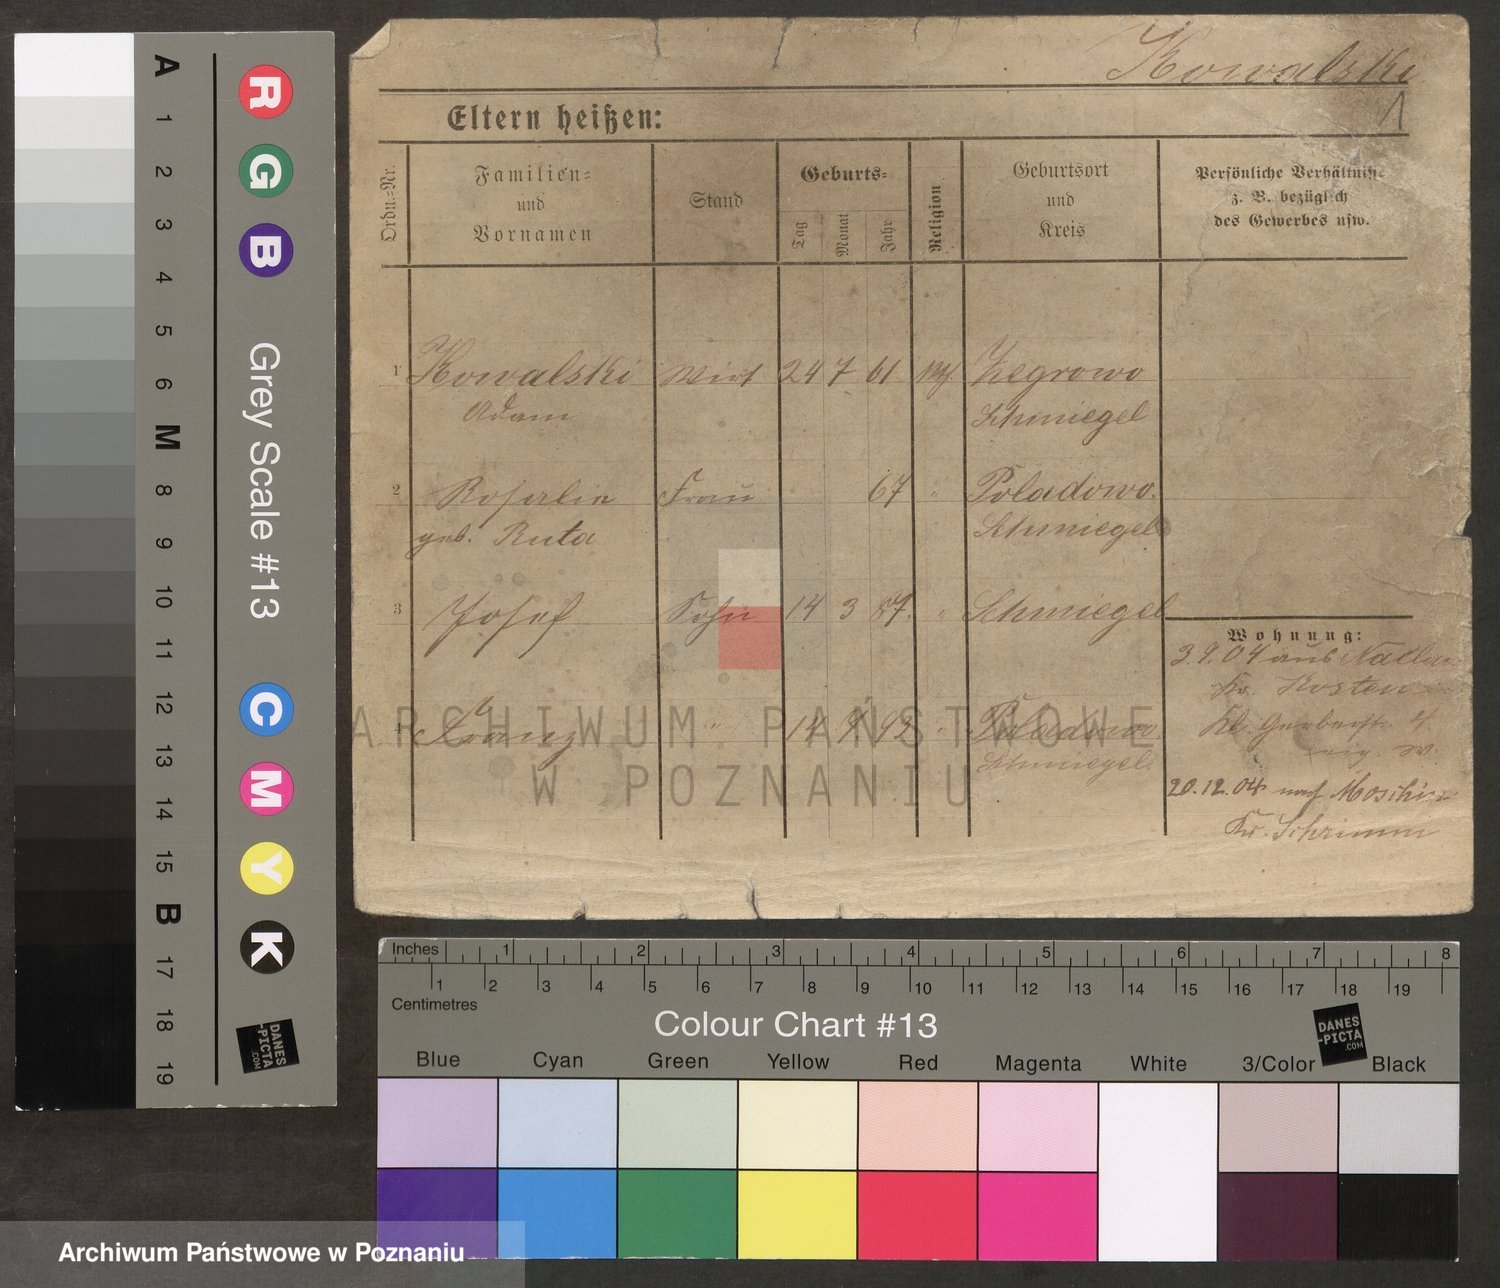 Kowalski
1
Eltern heißen:
Ordn.-Nr.
Familien=
und
Vornamen
Stand
Geburts=
Tag
Monat
Jahr
Religion
Geburtsort
und
Kreis
Persönliche Verhältnisse
z. B. bezüglich
des Gewerbes usw.
1 Kowalski Wirt 24 7 61 Zegrowo
Adam Schmiegel
2 Rosalie Frau 67 " Poladowo.
geb. Ruta Schmiegel
3 Josef Sohn 14 3 87. " Schmiegel
4 Franz " 14 9 92 " Poladowo
Schmiegel
Wohnung:
3.9.04 aus
Kr. Kosten
Kl. Gerberstr. 4
20.12.04 nach
Kr. Schrimm
ARCHIWUM PAŃSTWOWE
W POZNANIU
A 1 2 3 4 5 6 M 8 9 10 11 12 13 14 15 B 17 18 19
R G B
Grey Scale #13
C M Y K
DANES
-PICTA
.COM
Inches 1 2 3 4 5 6 7 8
1 2 3 4 5 6 7 8 9 10 11 12 13 14 15 16 17 18 19
Centimetres
Colour Chart #13
DANES
-PICTA
.COM
Blue Cyan Green Yellow Red Magenta White 3/Color Black
Archiwum Państwowe w Poznaniu